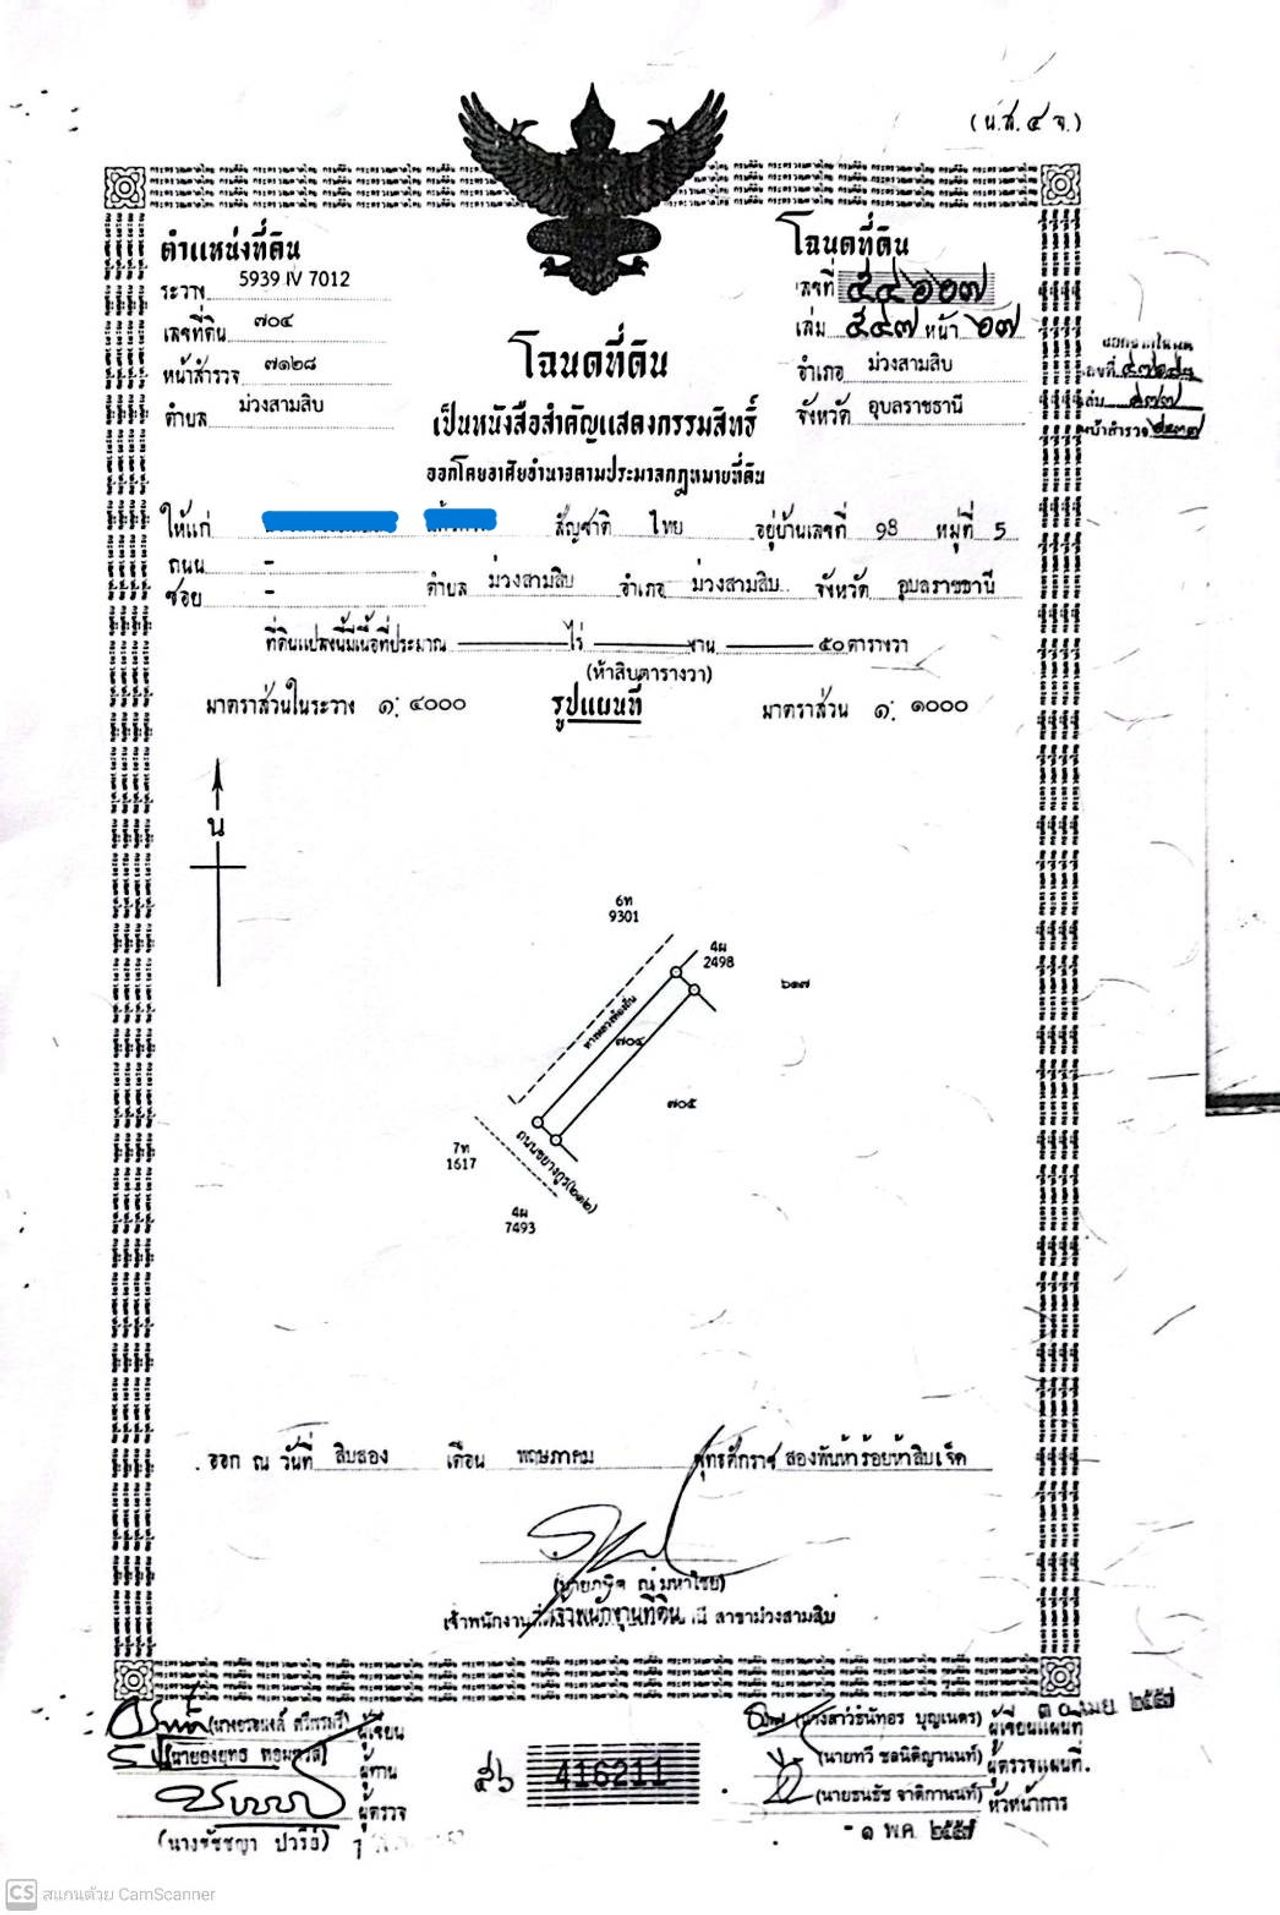 (น.ส. ๔ จ.)
ตำแหน่งที่ดิน
ระวาง 5939 IV 7012
เลขที่ดิน ๗๐๔
หน้าสำรวจ ๗๑๒๘
ตำบล ม่วงสามสิบ
โฉนดที่ดิน
เลขที่ ๕๔๖๖๗
เล่ม ๕๔๗ หน้า ๖๗
อำเภอ ม่วงสามสิบ
จังหวัด อุบลราชธานี
เลขที่
เล่ม ๔๗๗
หน้าสำรวจ
โฉนดที่ดิน
เป็นหนังสือสำคัญแสดงกรรมสิทธิ์
ออกโดยอาศัยอำนาจตามประมวลกฎหมายที่ดิน
ให้แก่ สัญชาติ ไทย อยู่บ้านเลขที่ 98 หมู่ที่ 5
ถนน -
ซอย - ตำบล ม่วงสามสิบ อำเภอ ม่วงสามสิบ จังหวัด อุบลราชธานี
ที่ดินแปลงนี้มีเนื้อที่ประมาณ ไร่ งาน ๕๐ ตารางวา
(ห้าสิบตารางวา)
มาตราส่วนในระวาง ๑: ๔๐๐๐ รูปแผนที่ มาตราส่วน ๑: ๑๐๐๐
น
6ท
9301
4ผ
2498
๖๑๗
ทางหลวงท้องถิ่น
๗๐๔
๗๐๕
7ท
1617
ถนนชยางกูร(๒๑๒)
4ผ
7493
ออก ณ วันที่ สิบสอง เดือน พฤษภาคม พุทธศักราช สองพันห้าร้อยห้าสิบเจ็ด
ณ มหาไชย)
เจ้าพนักงานที่ดิน สาขาม่วงสามสิบ
ผู้เขียน
ผู้ทาน
ผู้ตรวจ
ฉ๖ 416211
บุญเนตร) ผู้เขียนแผนที่
๓๐ เม.ย. ๒๕๕๗
(นายทวี ชลนิติญานนท์) ผู้ตรวจแผนที่
(นายธนธัช ชาติกานนท์) หัวหน้าการ
- ๑ พ.ค. ๒๕๕๗
CS สแกนด้วย CamScanner